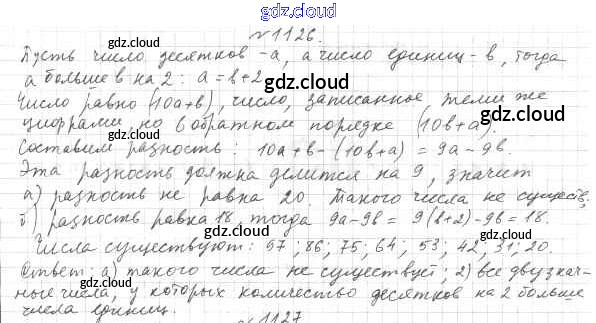 gdz.cloud
№1126.
gdz.cloud gdz.cloud
Пусть число десятков -а, а число единиц - в, тогда
а больше в на 2: а = в+2
gdz.cloud
Число равно (10а+в), число, записанное теми же
цифрами, но в обратном порядке (10в+а).
gdz.cloud gdz.cloud
Составим разность: 10а+в-(10в+а) = 9а-9в.
Эта разность должна делится на 9, значит
gdz.cloud
а) разность не равна 20. Такого числа не существ.
б) разность равна 18, тогда 9а-9в = 9(в+2)-9в=18.
gdz.cloud gdz.cloud
Числа существуют: 97; 86; 75; 64; 53; 42; 31; 20.
Ответ: а) такого числа не существует; 2) все двузнач-
gdz.cloud
ные числа, у которых количество десятков на 2 больше
числа единиц.
gdz.cloud gdz.cloud
№1127